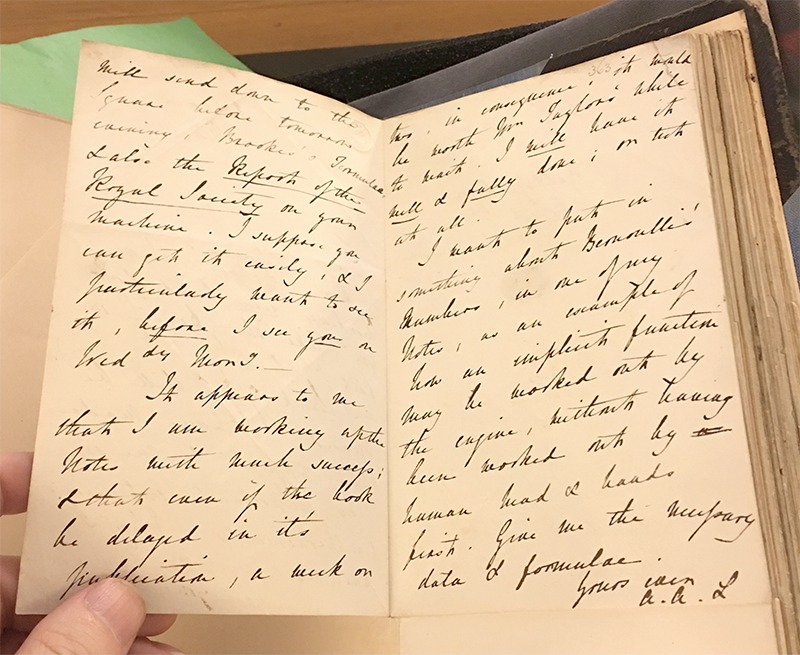 Will send down to the
Square before tomorrow
evening, Brooke's Formulae,
& also the Report of the
Royal Society on your
machine. I suppose you
can get it easily, & I
particularly want to see
it, before I see you on
Wed dy Morng.—
It appears to me
that I am working up the
Notes with much success;
& that even if the book
be delayed in it's
publication, a week or
363
two, in consequence, it would
be worth Mr Taylors' while
to wait. I will have it
well & fully done; or not
at all.
I want to put in
something about Bernoulli's
Numbers, in one of my
Notes, as an example of
how an implicit function
may be worked out by
the engine, without having
been worked out by
human head & hands
first. Give me the necessary
data & formulae.
Yours ever
A. A. L